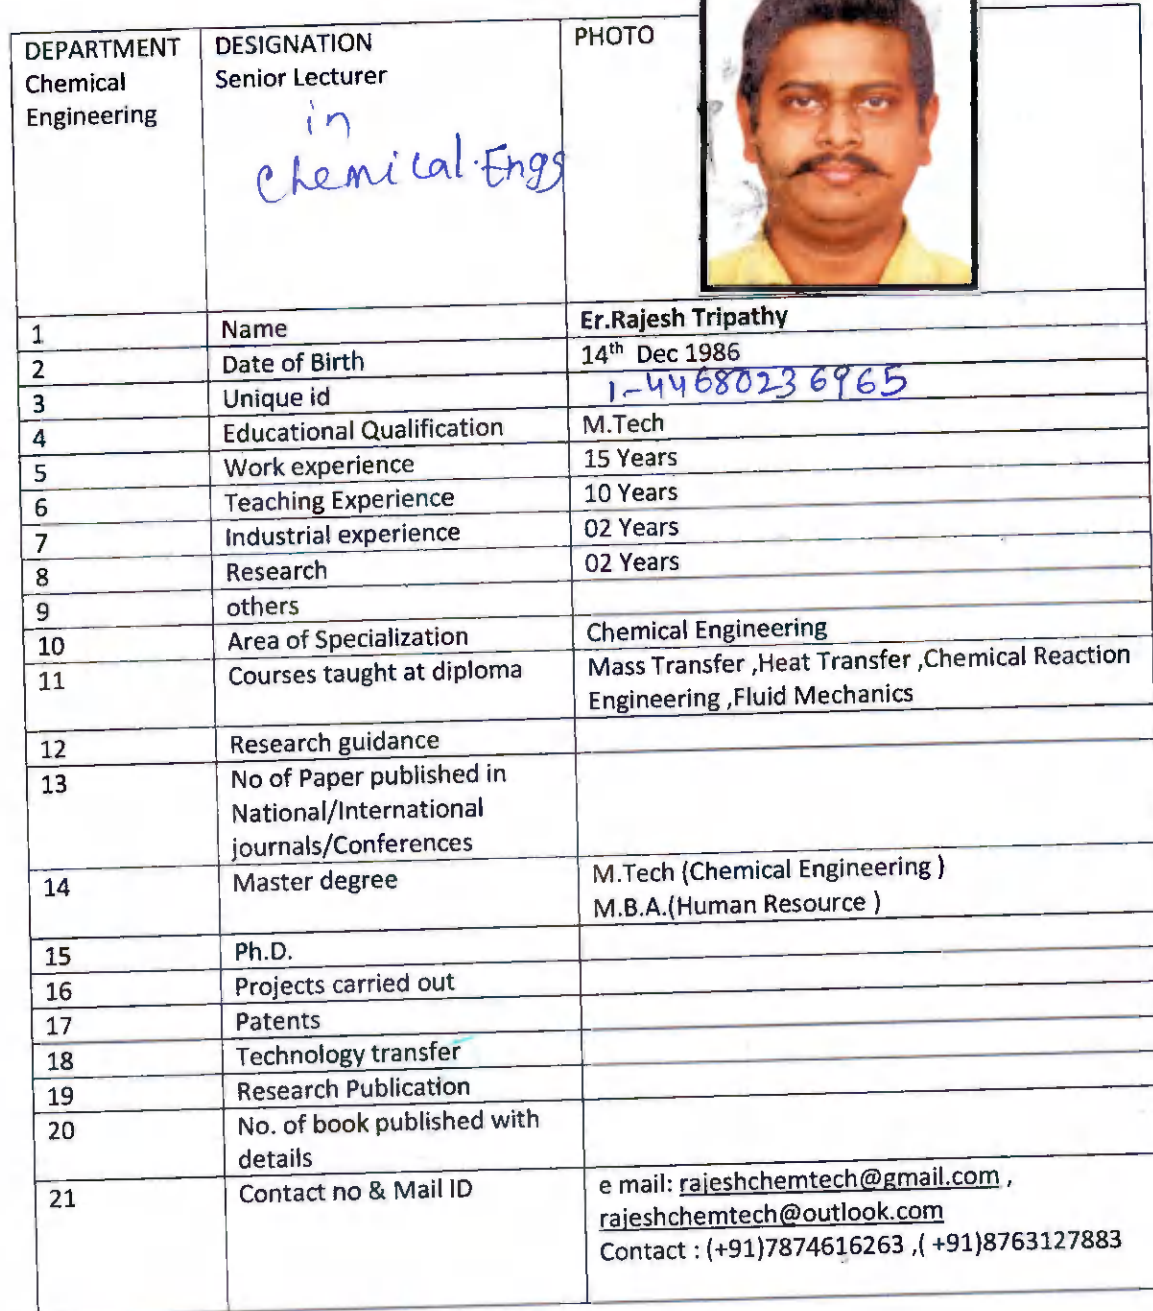 DEPARTMENT
Chemical
Engineering
DESIGNATION
Senior Lecturer
in
Chemical.Engg
PHOTO
1 Name Er.Rajesh Tripathy
2 Date of Birth 14th Dec 1986
3 Unique id 1-44680236965
4 Educational Qualification M.Tech
5 Work experience 15 Years
6 Teaching Experience 10 Years
7 Industrial experience 02 Years
8 Research 02 Years
9 others
10 Area of Specialization Chemical Engineering
11 Courses taught at diploma Mass Transfer ,Heat Transfer ,Chemical Reaction
Engineering ,Fluid Mechanics
12 Research guidance
13 No of Paper published in
National/International
journals/Conferences
14 Master degree M.Tech (Chemical Engineering )
M.B.A.(Human Resource )
15 Ph.D.
16 Projects carried out
17 Patents
18 Technology transfer
19 Research Publication
20 No. of book published with
details
21 Contact no & Mail ID e mail: rajeshchemtech@gmail.com ,
rajeshchemtech@outlook.com
Contact : (+91)7874616263 ,( +91)8763127883